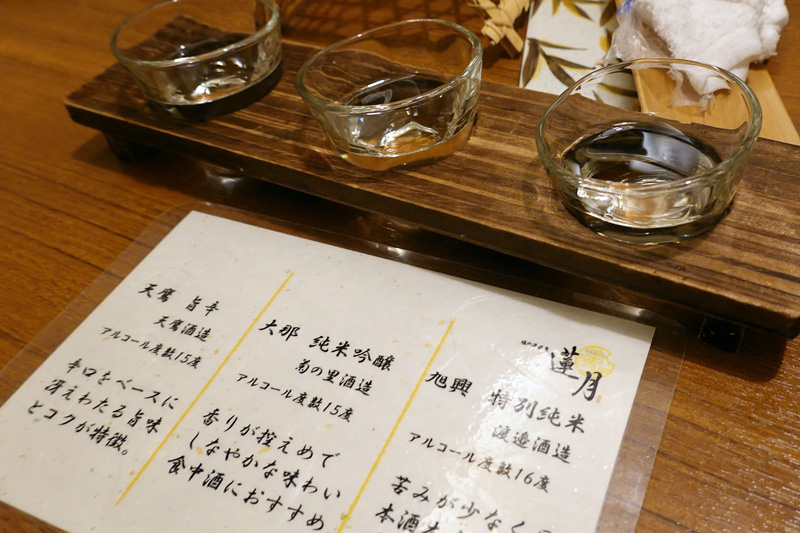 天鷹 旨辛
天鷹酒造
アルコール度数15度
辛口をベースに
冴えわたる旨味
とコクが特徴。
大那 純米吟醸
菊の里酒造
アルコール度数15度
香りが控えめで
しなやかな味わい
食中酒におすすめ
蓮月
旭興 特別純米
渡邉酒造
アルコール度数16度
苦みが少なく
本酒